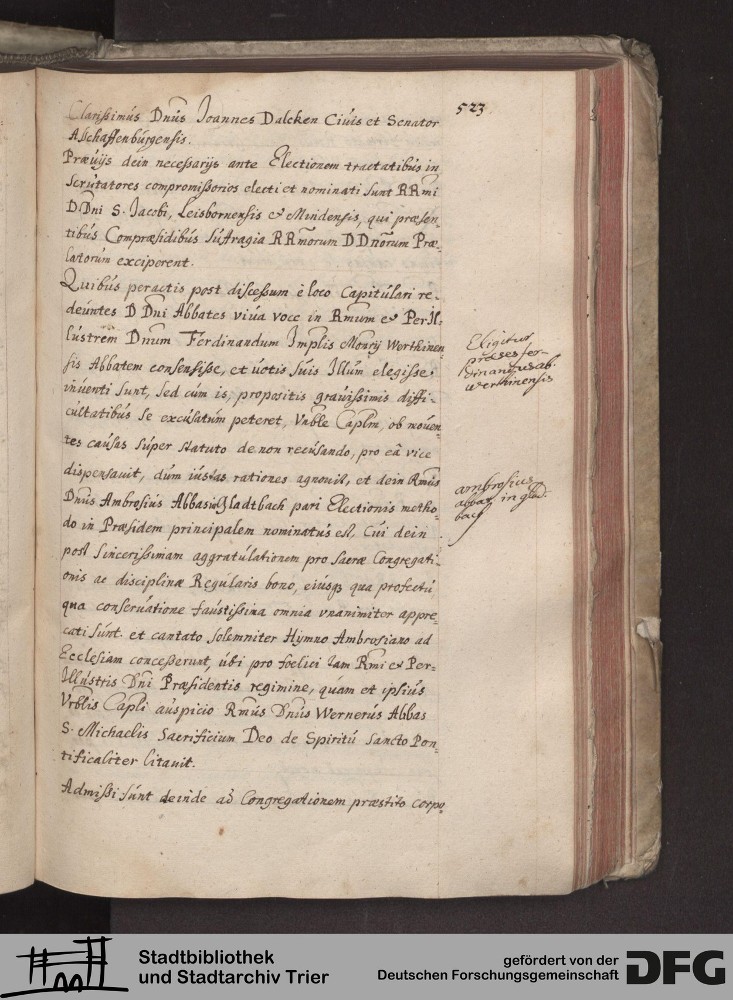 523
Clarissimus Dnus Joannes Dalcken Ciuis et Senator
Aschaffenburgensis.
Præuijs dein necessarijs ante Electionem tractatibus in
Scrutatores compromissorios electi et nominati sunt RRmi
DDni S. Jacobi, Leisbornensis et Mindensis, qui præsen-
tibus Compræsidibus suffragia RRmorum DDnorum Præ-
latorum exciperent.
Quibus peractis post discessum è loco Capitulari re-
deuntes DDni Abbates viua voce in Rmum et Per Il-
lustrem Dnum Ferdinandum Implis Monrij Werthinen
sis Abbatem consensisse, et uotis suis Illum elegisse
inuenti sunt, sed cum is, propositis grauissimis diffi-
cultatibus se excusatum peteret, Vnble Caplm, ob mouen-
tes causas super statuto de non recusando, pro eâ vice
dispensauit, dum iustas rationes agnouit, et dein Rmus
Dnus Ambrosius Abbas in Gladtbach pari Electionis metho-
do in Præsidem principalem nominatus est, Cui dein
post sincerissimam aggratulationem pro sacræ Congregati-
onis ac disciplinæ Regularis bono, eiusq qua profectu
qua conseruatione faustissima omnia vnanimiter appre-
cati sunt. et cantato solemniter Hymno Ambrosiano ad
Ecclesiam concesserunt, ubi pro foelici tam Rmi et Per-
Illustris Dni Præsidentis regimine, quam et ipsius
Vrblis Capli auspicio Rmus Dnus Wernerus Abbas
S. Michaelis Sacrificium Deo de Spiritu Sancto Pon
tificaliter litauit.
Admissi sunt deinde ad Congregationem præstito corpo
Eligitur
præses fer-
dinandus ab.
werthinensis
ambrosius
abbas in glad-
bach
Stadtbibliothek
und Stadtarchiv Trier
gefördert von der
Deutschen Forschungsgemeinschaft
DFG